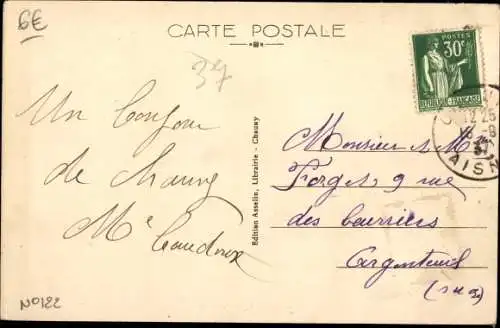 6E
CARTE POSTALE
37
POSTES
30c
REPUBLIQUE FRANÇAISE
12 25
37
AISN
Un bonjour
de Chauny
Me
Edition Asselin, Librairie - Chauny
Monsieur & Me
Forget, 9 rue
des
Argenteuil
(S & O)
No 122